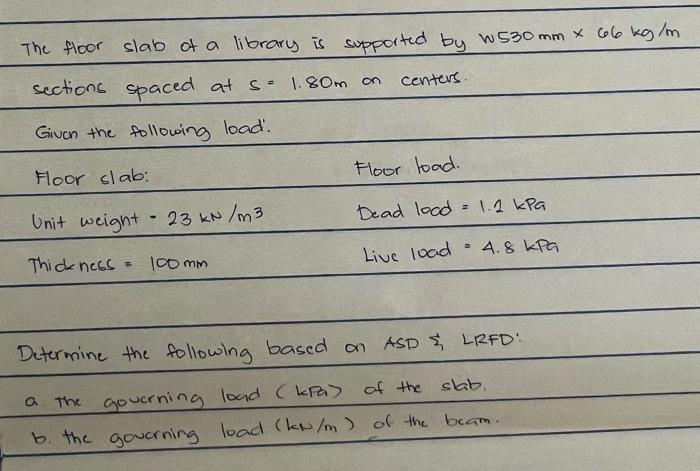 The floor slab of a library is supported by W530mm × 66 kg/m
sections spaced at s = 1.80m on centers.
Given the following load:
Floor slab: Floor load.
Unit weight = 23 kN/m³ Dead load = 1.2 kPa
Thickness = 100mm Live load = 4.8 kPa
Determine the following based on ASD & LRFD:
a. The governing load (kPa) of the slab.
b. the governing load (kN/m) of the beam.